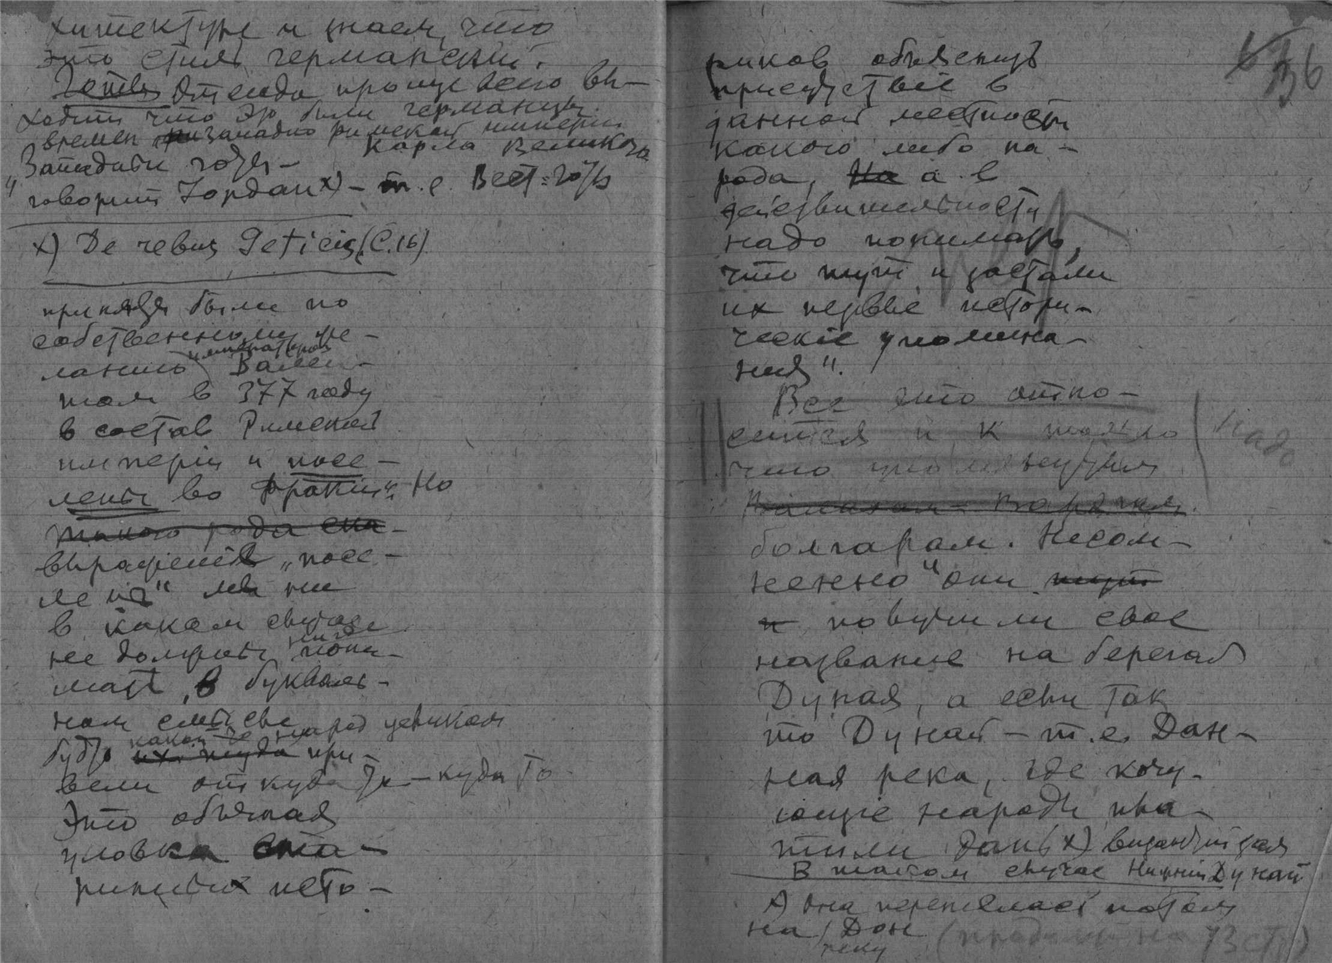 хитектуре и знаем, что
это стиль германский.
Готы отсюда проще всего вы-
ходит что это были германцы
времен западно римской империи
Карла Великого
"Западные готы –
говорит Iордан х) – т. е. Вест-готы
х) De rebus Geticis (C. 16)
приняты были по
собственному же-
ланию императором Вален-
том в 377 году
в состав Римской
империи и посе-
лены во Фракии". Но
такого рода ска-
выражений „посе-
лены" мы ни
в каком случае
не должны нигде пони-
мать в букваль-
ном смысле
будто какой то народ целиком
их туда при-
вели откуда то – куда то
Это обычная
уловка ста-
ринных исто-
риков объяснить
присутствие в
данной местности
какого либо на-
рода, На а в
действительности
надо понимать,
что тут и застали
их первые истори-
ческие упомина-
ния".
Все это отно-
сится и к только
что упомянутым
болгарам. Несом-
ненно они тут
и получили свое
название на берегах
Дуная, а если так
то Дунай – т. е. Дан-
ная река, где кочу-
ющие народы пла-
тили дань х) византийцам
В таком случае Нижний Дунай
А она перенялась потом
на реку Дон (продолж на 73 стр)
надо
36